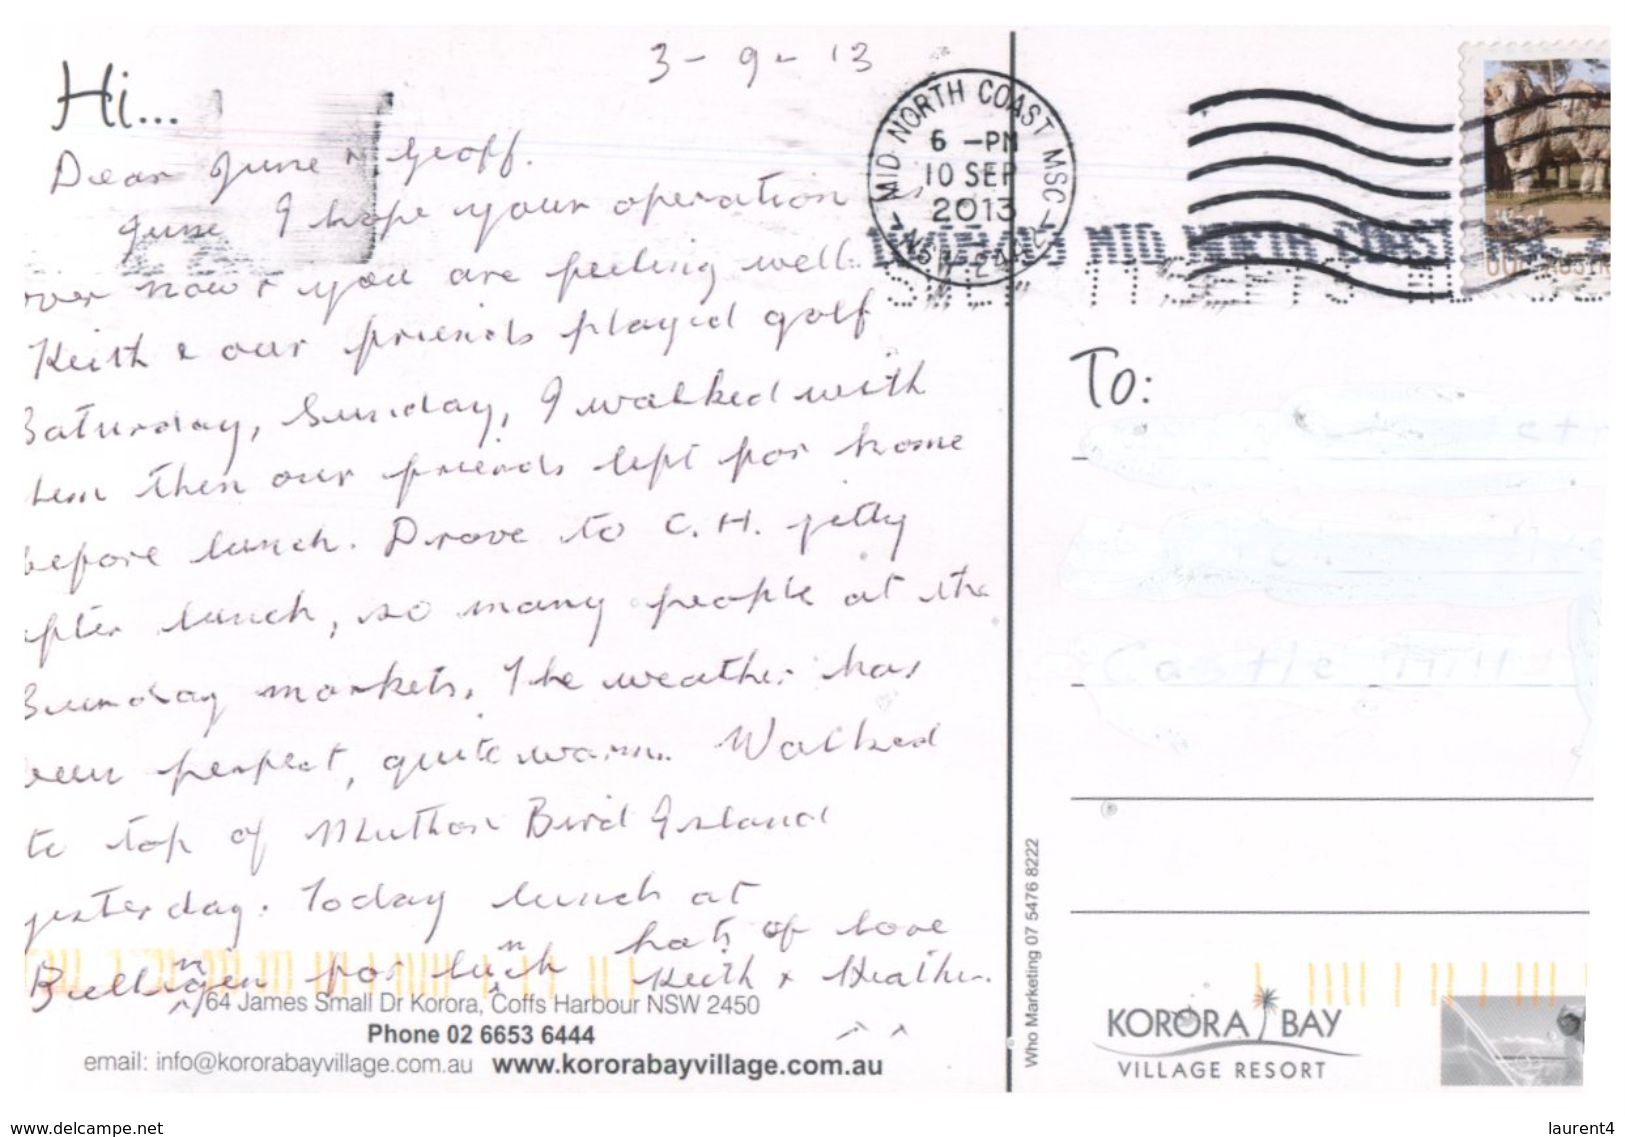 3 - 9 - 13
Hi...
Dear June & Geoff.
June I hope your operation is
over now & you are feeling well.
Keith & our friends played golf
Saturday, Sunday, I walked with
them then our friends left for home
before lunch. Drove to C.H. jetty
after lunch, so many people at the
Sunday markets. The weather has
been perfect, quite warm. Walked
to top of Mutton Bird Island
yesterday. Today lunch at
Bellingen for lunch
hats of love
Keith & Heather.
64 James Small Dr Korora, Coffs Harbour NSW 2450
Phone 02 6653 6444
email: info@kororabayvillage.com.au www.kororabayvillage.com.au
MID NORTH COAST MSC
6 -PM
10 SEP
2013
MID NORTH COAST
To:
Castle Hill
Who Marketing 07 5476 8222
KORORA BAY
VILLAGE RESORT
www.delcampe.net
laurent4